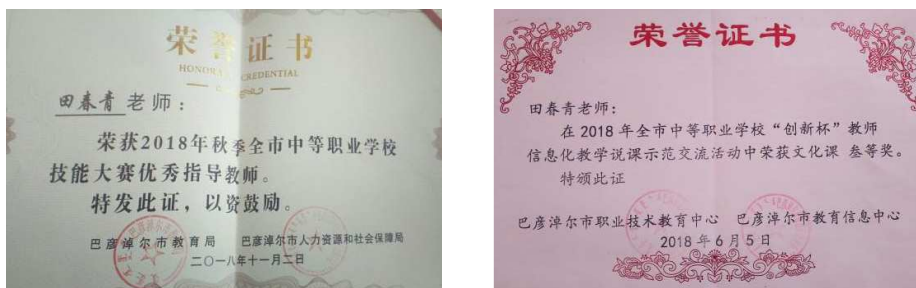 荣誉证书
HONORARY CREDENTIAL
田春青 老师：
荣获2018年秋季全市中等职业学校
技能大赛优秀指导教师。
特发此证，以资鼓励。
巴彦淖尔市教育局 巴彦淖尔市人力资源和社会保障局
二〇一八年十一月二日
荣誉证书
田春青老师：
在 2018 年全市中等职业学校“创新杯”教师
信息化教学说课示范交流活动中荣获文化课 叁等奖。
特颁此证
巴彦淖尔市职业技术教育中心 巴彦淖尔市教育信息中心
2018 年 6 月 5 日